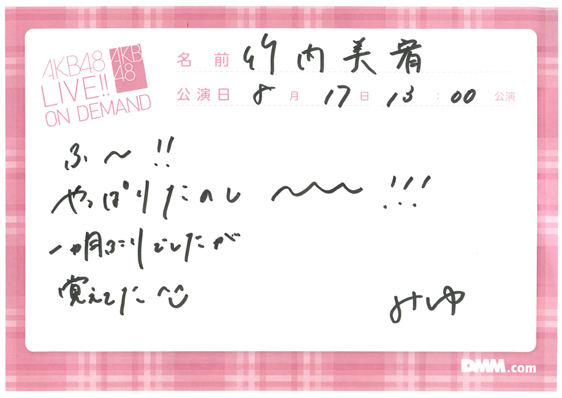 AKB48
LIVE!!
ON DEMAND
AKB
48
名前 竹内美宥
公演日 8月17日 13:00 公演
ふ〜!!
やっぱりたのし〜〜〜!!!
一ヶ月ぶりでしたが
覚えてた^^
みゆ
DMM.com